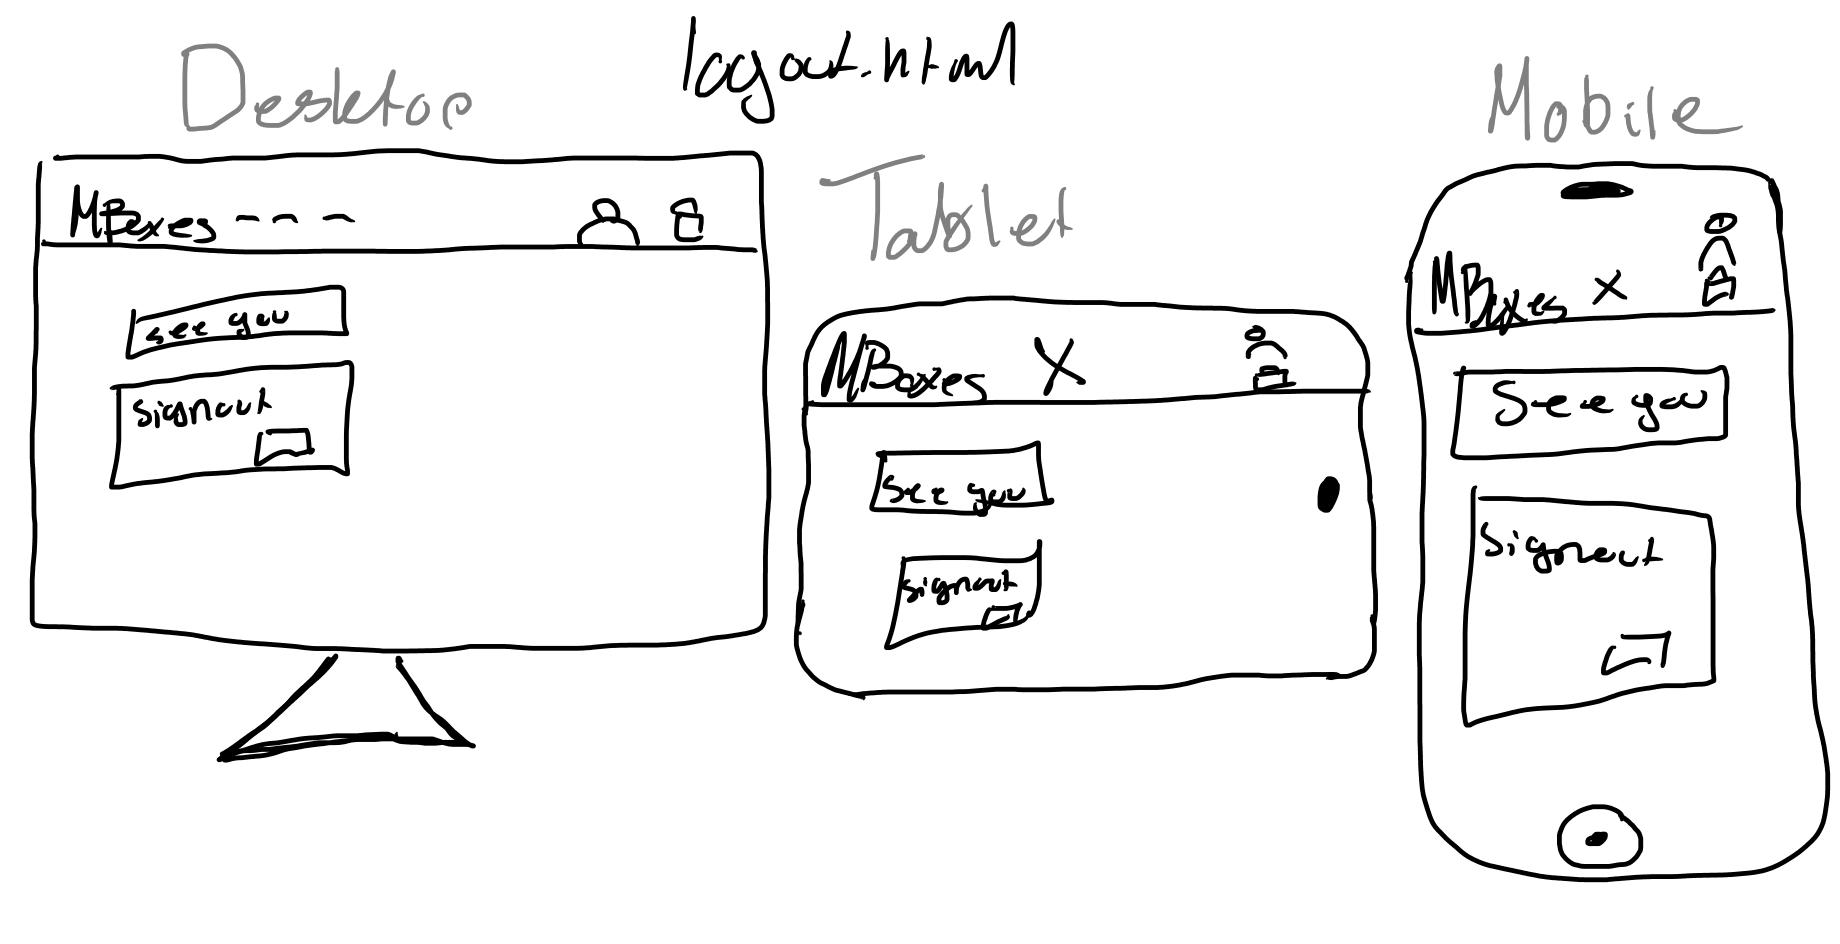 logout.html
Desktop
MBoxes - - -
see you
signout
Tablet
MBoxes X
see you
signout
Mobile
MBoxes X
See you
Signout